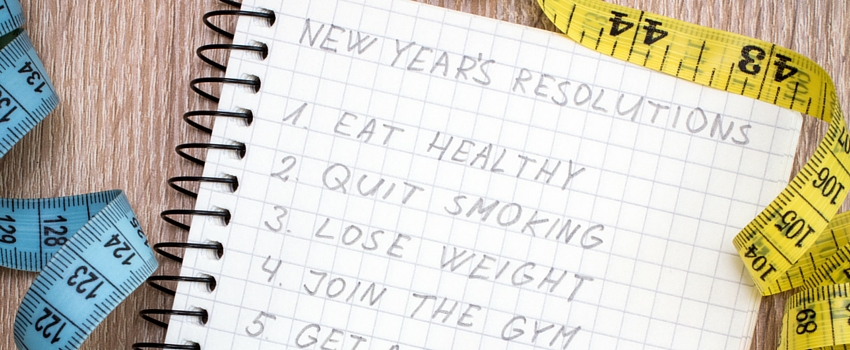 NEW YEAR'S RESOLUTIONS
1. EAT HEALTHY
2. QUIT SMOKING
3. LOSE WEIGHT
4. JOIN THE GYM
5. GET
134
129
128
124
123
122
44
43
106
105
104
68